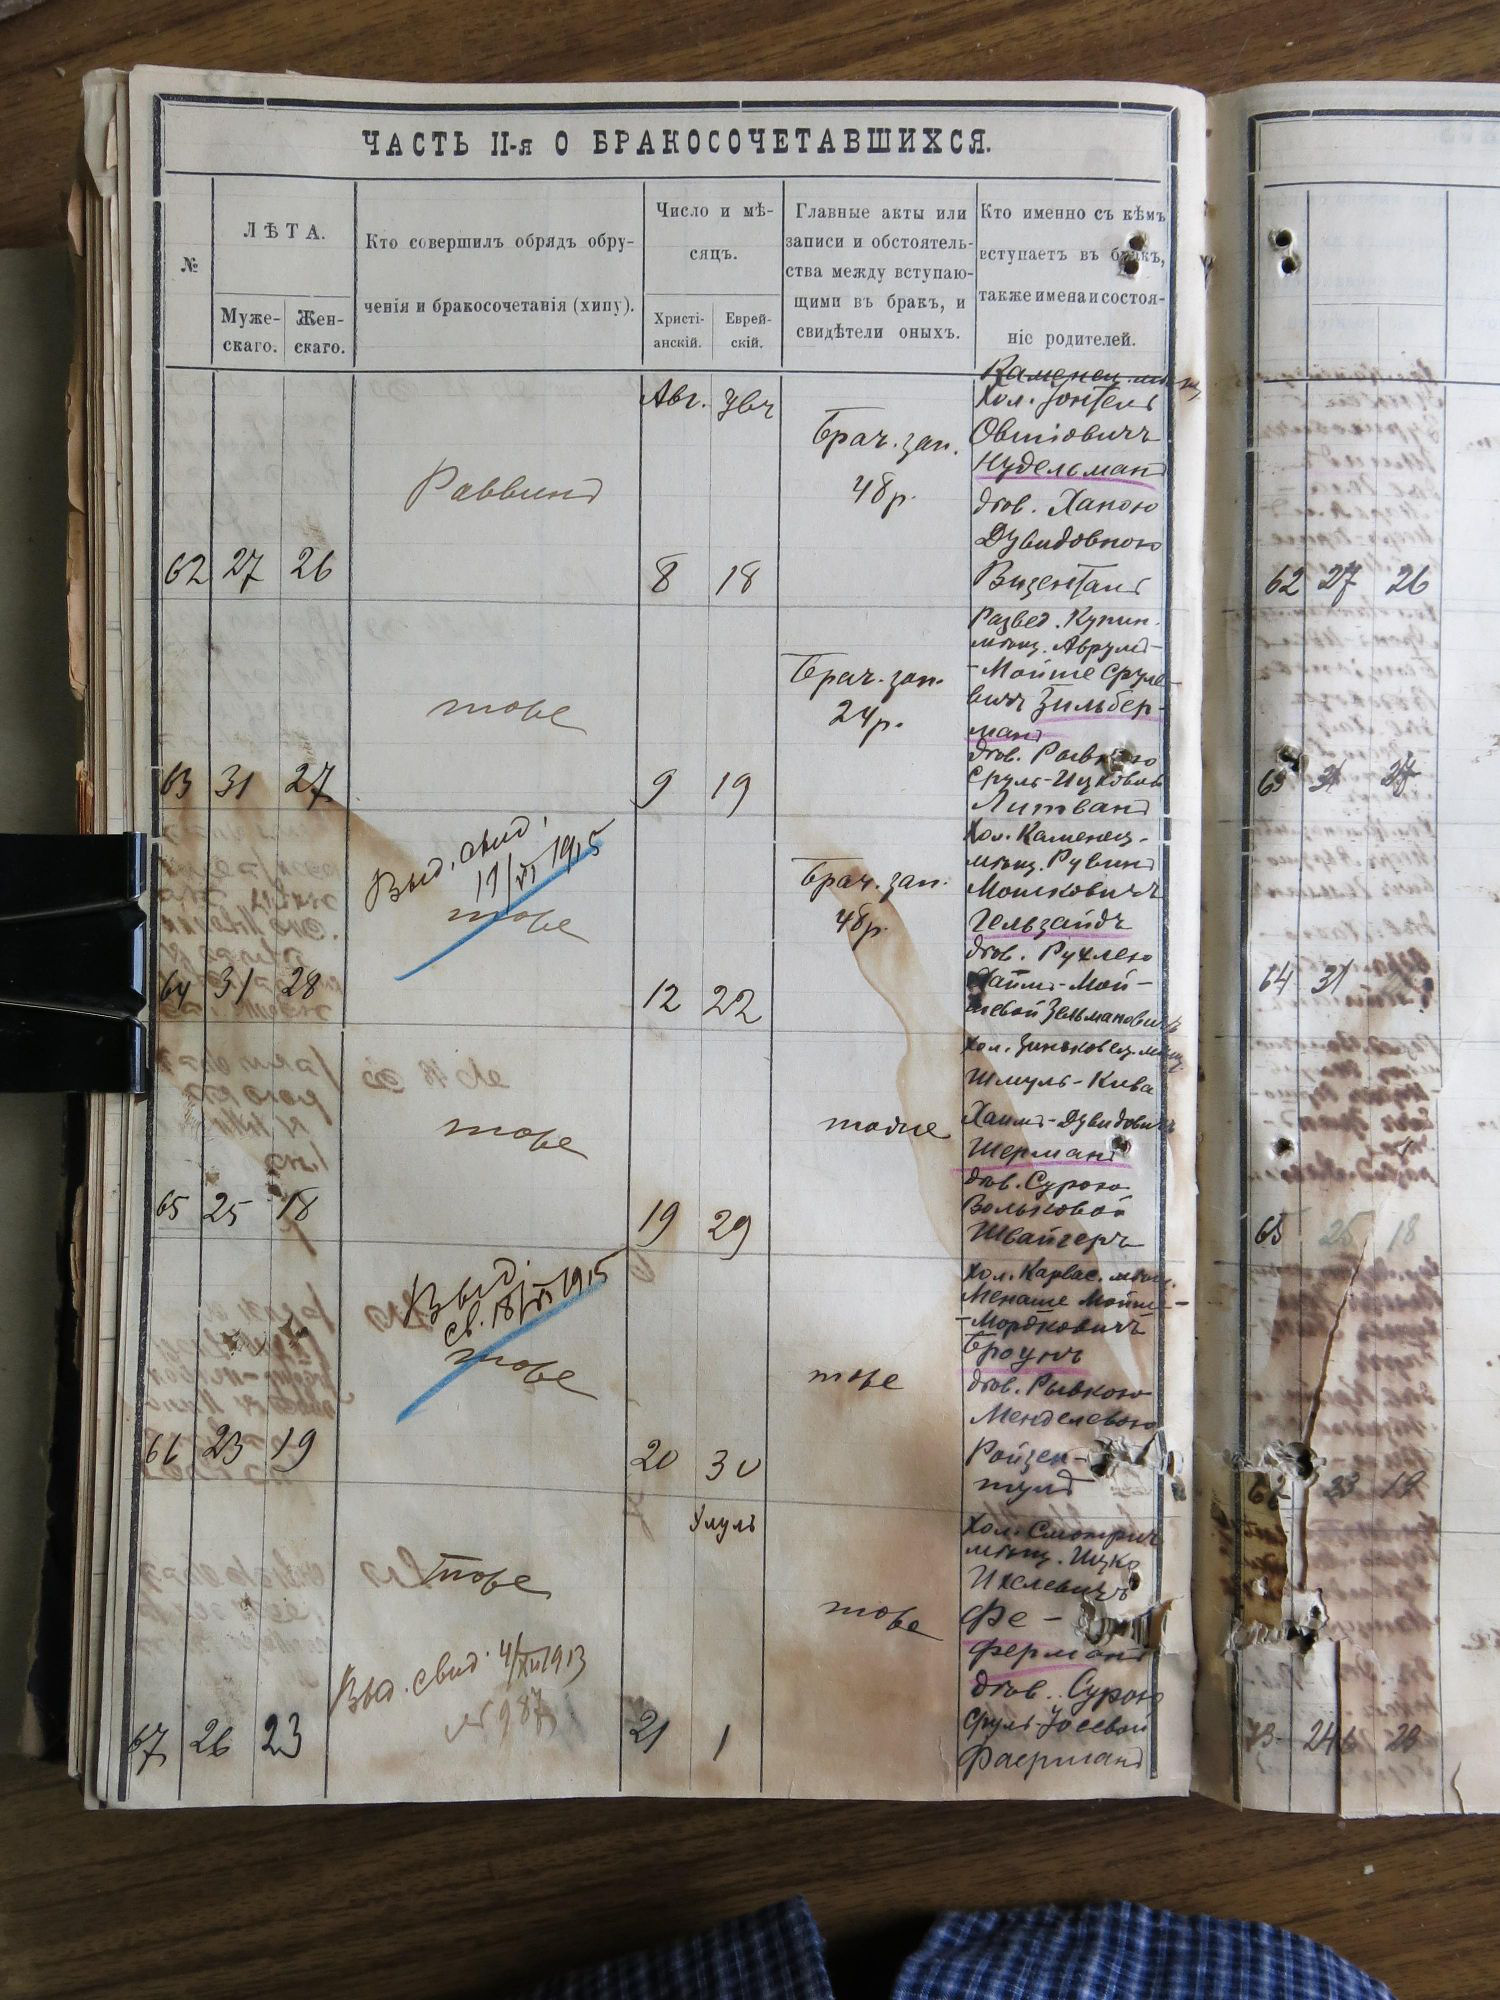 ЧАСТЬ II-я О БРАКОСОЧЕТАВШИХСЯ.
№
ЛѢТА.
Муже-
скаго.
Жен-
скаго.
Кто совершилъ обрядъ обру-
ченія и бракосочетанія (хипу).
Число и мѣ-
сяцъ.
Христі-
анскій.
Еврей-
скій.
Главные акты или
записи и обстоятель-
ства между вступаю-
щими въ бракъ, и
свидѣтели оныхъ.
Кто именно съ кѣмъ
вступаетъ въ бракъ,
также имена и состоя-
ніе родителей.
62 27 26
Раввинъ
Авг.
8 18
Брач. зап.
48 р.
Каменец. мѣщ.
Хол.
Овшіовичъ
Нудельманъ
дѣв. Ханою
Дувидовною
Визенталь
63 31 27
тоже
9 19
Брач. зап.
24 р.
Развед. Купин.
мѣщ. Аврумъ-
-Мойше Сруле-
вичъ Зильбер-
манъ
дѣв. Рывкою
Сруль-Ицковой
Литванъ
64 31 28
Выд. свид.
11/VI 1915
тоже
12 22
Брач. зап.
48 р.
Хол. Каменец-
мѣщ. Рувинъ
Мошковичъ
Гельзайдъ
дѣв. Рухлею
Хаимъ-Мой-
шевой Зельмановичъ
65 25 18
тоже
19 29
тоже
Хол. Зиньковец. мѣщ.
Шмуль-Кива
Хаимъ-Дувидовичъ
Шерманъ
дѣв. Сурою
Вольковой
Швайгеръ
66 23 19
Выд.
св. 18/VI 1915
тоже
20 30
тоже
Хол. Карвас. мѣщ.
Менаше Мойше-
-Мордковичъ
Броунъ
дѣв. Рывкою
Менделевою
Ройзен-
67 26 23
тоже
Выд. свид. 4/XII 1913
№ 987
Элулъ
21 1
тоже
Хол. Смотрич.
мѣщ. Ицко
Ихелевичъ
Фе-
ферманъ
дѣв. Сурою
Сруль-Іосевой
Фаерманъ
62 27 26
63 31 27
64 31
65 25 18
66 23 19